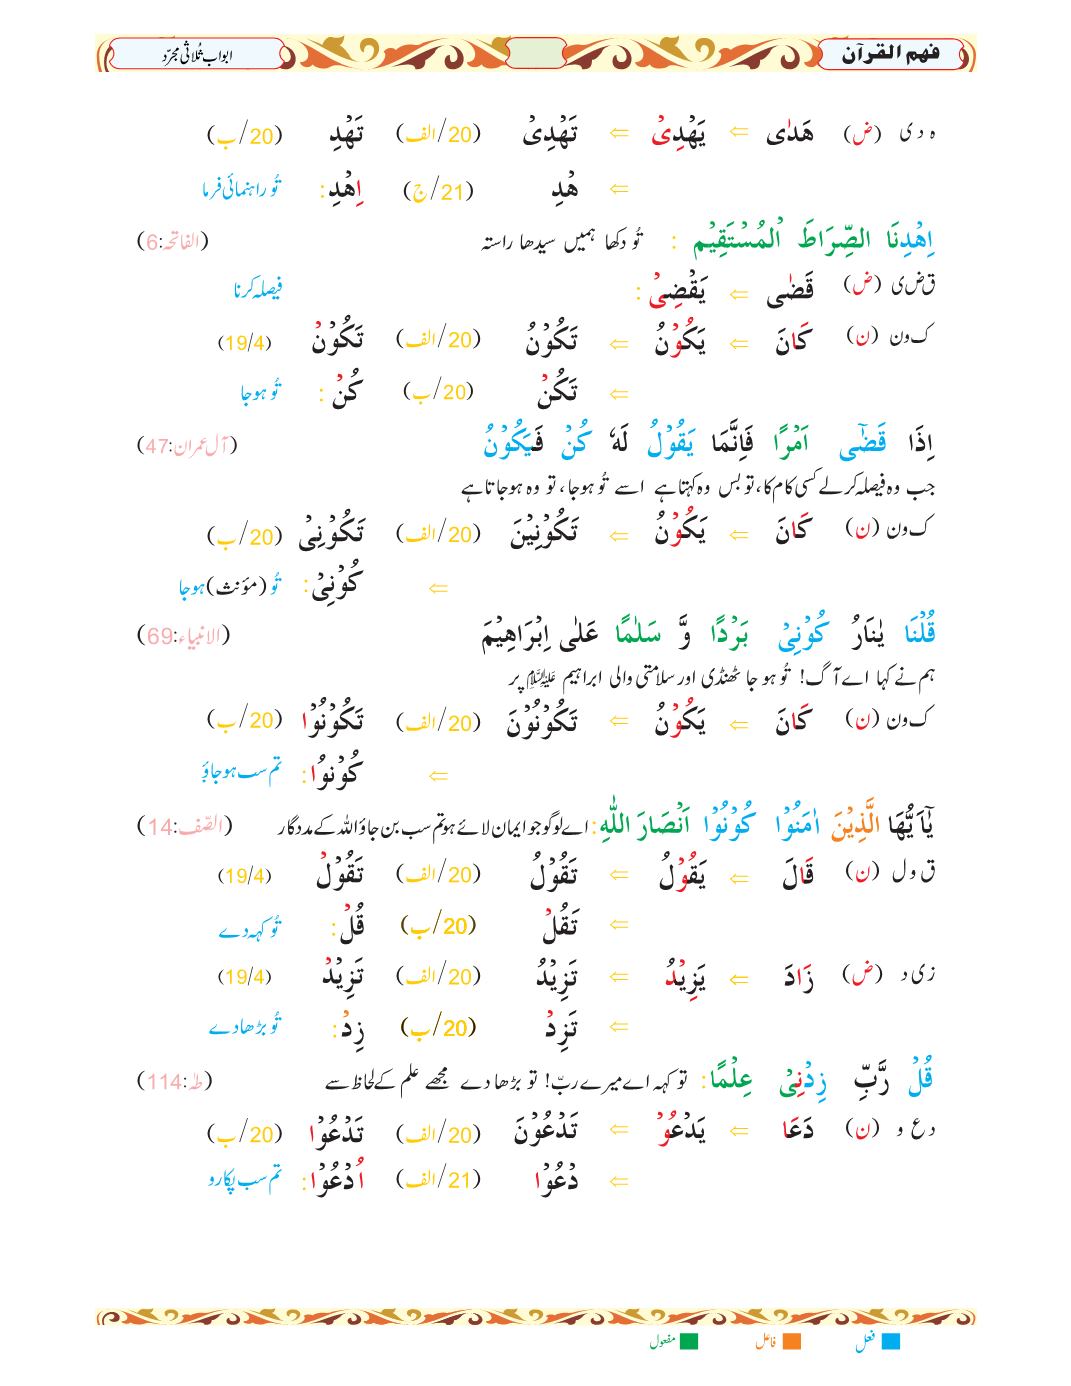 فہم القرآن
ابواب ثُلاثی مجرّد
ہ د ی (ض) هَدٰى ⇐ يَهْدِىْ ⇐ تَهْدِىْ (20/الف) تَهْدِ (20/ب)
⇐ هْدِ (21/ج) اِهْدِ : تُو راہنمائی فرما
اِهْدِنَا الصِّرَاطَ الْمُسْتَقِيْم : تُو دکھا ہمیں سیدھا راستہ (الفاتحہ:6)
ق ض ی (ض) قَضٰى ⇐ يَقْضِىْ : فیصلہ کرنا
ک و ن (ن) كَانَ ⇐ يَكُوْنُ ⇐ تَكُوْنُ (20/الف) تَكُوْنْ (19/4)
⇐ تَكُنْ (20/ب) كُنْ : تُو ہو جا
اِذَا قَضٰٓى اَمْرًا فَاِنَّمَا يَقُوْلُ لَهٗ كُنْ فَيَكُوْنُ (آل عمران:47)
جب وہ فیصلہ کرلے کسی کام کا، تو بس وہ کہتا ہے اسے تُو ہو جا، تو وہ ہو جاتا ہے
ک و ن (ن) كَانَ ⇐ يَكُوْنُ ⇐ تَكُوْنِيْنَ (20/الف) تَكُوْنِىْ (20/ب)
⇐ كُوْنِىْ : تُو (مؤنث) ہو جا
قُلْنَا يٰنَارُ كُوْنِىْ بَرْدًا وَّ سَلٰمًا عَلٰى اِبْرَاهِيْمَ (الانبیاء:69)
ہم نے کہا اے آگ! تُو ہو جا ٹھنڈی اور سلامتی والی ابراہیم علیہ السلام پر
ک و ن (ن) كَانَ ⇐ يَكُوْنُ ⇐ تَكُوْنُوْنَ (20/الف) تَكُوْنُوْا (20/ب)
⇐ كُوْنُوْا : تم سب ہو جاؤ
يٰٓاَيُّهَا الَّذِيْنَ اٰمَنُوْا كُوْنُوْا اَنْصَارَ اللّٰهِ : اے لوگو جو ایمان لائے ہو تم سب بن جاؤ اللہ کے مددگار (الصّف:14)
ق و ل (ن) قَالَ ⇐ يَقُوْلُ ⇐ تَقُوْلُ (20/الف) تَقُوْلْ (19/4)
⇐ تَقُلْ (20/ب) قُلْ : تُو کہہ دے
ز ی د (ض) زَادَ ⇐ يَزِيْدُ ⇐ تَزِيْدُ (20/الف) تَزِيْدْ (19/4)
⇐ تَزِدْ (20/ب) زِدْ : تُو بڑھا دے
قُلْ رَّبِّ زِدْنِىْ عِلْمًا : تو کہہ اے میرے ربّ! تو بڑھا دے مجھے علم کے لحاظ سے (طٰہٰ:114)
د ع و (ن) دَعَا ⇐ يَدْعُوْ ⇐ تَدْعُوْنَ (20/الف) تَدْعُوْا (20/ب)
⇐ دْعُوْا (21/الف) اُدْعُوْا : تم سب پکارو
فعل فاعل مفعول